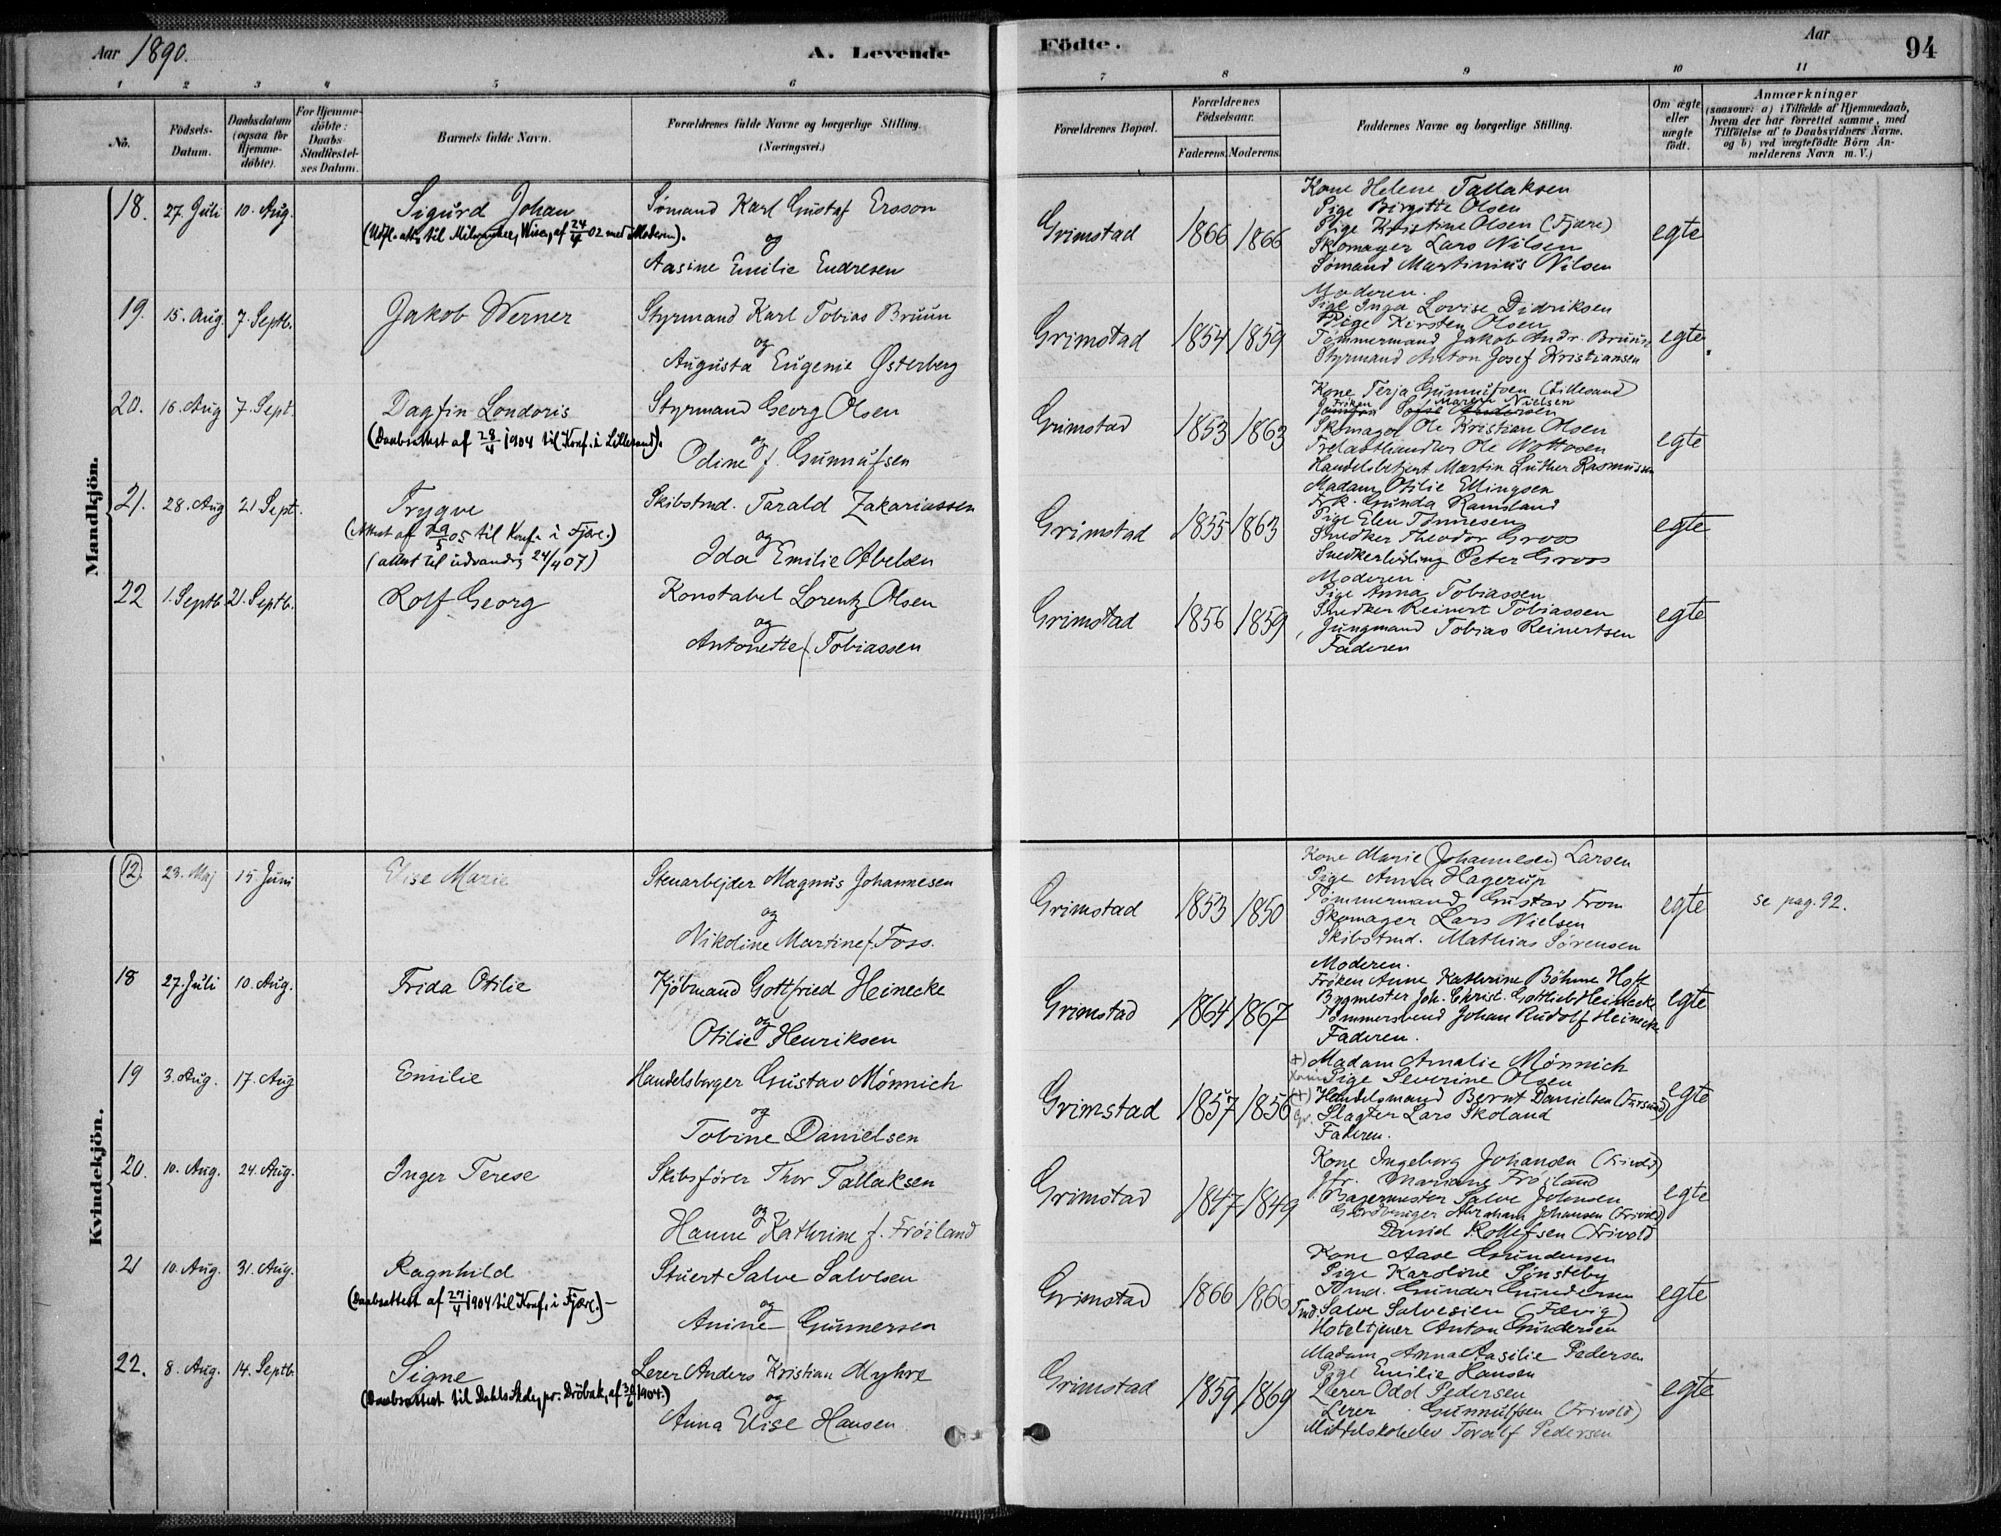 Aar 1890.
A. Levende
1 2 3 4 5 6
No.
Födsels-Datum.
Daabsdatum (ogsaa for Hjemmedöbte).
For Hjemmedöbte: Daabs Stadfæstelses Datum.
Barnets fulde Navn.
Forældrenes fulde Navne og borgerlige Stilling. (Næringsvei.)
Mandkjön.
18. 27. Juli 10. Aug. Sigurd Johan Sømand Karl Gustaf Ersson
(Utfl. att. til Milwaukee, Wisc, af 24/4 02 med Moderen). og
Aasine Emilie Endresen
19. 15. Aug. 7. Septb. Jakob Werner Styrmand Karl Tobias Bruun
og
Augusta Eugenie Østerberg
20. 16. Aug 7. Sept. Dagfin Londoris Styrmand Georg Olsen
(Daabsattest af 28/4 1904 til Konf. i Lillesand). og
Odine f. Gunnufsen
21. 28. Aug 21 Sept. Trygve Skibstmd. Tarald Zakariassen
(Attest af 29/5 05 til Konf. i Fjære.) og
(attest til udvandrg 24/4 07) Ida Emilie Abelsen
22 1. Septb. 21. Septb. Rolf Georg Konstabel Lorentz Olsen
og
Antonette f. Tobiassen
Kvindekjön.
12. 23. Maj 15 Juni Elise Marie Stenarbejder Magnus Johannesen
og
Nikoline Martine f. Foss.
18 27. Juli 10. Aug. Frida Otilie Kjøbmand Gottfried Heinecke
og
Otilie Henriksen
19 3. Aug. 17. Aug Emilie Handelsborger Gustav Mønnich
og
Tobine Danielsen
20. 10. Aug. 24. Aug. Inger Terese Skibsfører Thor Tallaksen
og
Hanne Kathrine f. Frøiland
21 10. Aug. 31. Aug. Ragnhild Stuert Salve Salvesen
(Daabsattest af 27/4 1904 til Konf. i Fjære.) og
Anine Gunnersen
22. 8. Aug. 14. Septb. Signe Lærer Anders Kristian Myhre
(Daabsattest til Dahls Skole, pr. Dröbak, af 1904.) og
Anna Elise Hansen
Födte.
Aar
94
7 8 9 10 11
Forældrenes Bopæl.
Forældrenes Födselsaar.
Faderens. Moderens.
Faddernes Navne og borgerlige Stilling.
Om ægte eller uægte födt.
Anmærkninger
(saasom: a) i Tilfælde af Hjemmedaab, hvem der har forrettet samme, med Tilföielse af to Daabsvidners Navne, og b) ved uægtefödte Börn Anmelderens Navn m. V.)
Kone Helene Tallaksen
Pige Birgitte Olsen
Pige Kristine Olsen (Fjære)
Grimstad 1866 1866 Skomager Lars Nilsen egte
Sømand Martinius Nilsen
Moderen.
Pige Inga Lovise Didriksen
Pige Kirsten Olsen
Grimstad 1854 1859 Tømmermand Jakob Andr. Bruun egte.
Styrmand Anton Josef Kristiansen
Kone Terja Gunnufsen (Lillesand)
Frøken Maren Nielsen
Jomfru Sofie Andersen
Grimstad 1853 1863 Skomager Ole Kristian Olsen egte
Trelasthandler Ole Nottosen
Handelsbetjent Martin Luther Rasmussen
Madam Otilie Ellingsen
Frk. Gunda Ramsland
Pige Elen Tønnesen
Grimstad 1855 1863 Snedker Theodor Groos egte
Snedkerlærling Peter Groos
Moderen.
Pige Anna Tobiassen
Grimstad 1856 1859 Snedker Reinert Tobiassen egte
Jungmand Tobias Reinertsen
Faderen
Kone Marie (Johannesen) Larsen
Pige Anna Hagerup
Grimstad 1853 1850 Tømmermand Gustav From egte se pag. 92.
Skomager Lars Nielsen
Skibstmd. Mathias Sørensen
Moderen.
Frøken Anne Kathrine Böhme Hoff
Grimstad 1864 1867 Bygmester Joh. Christ. Gottlieb Heinecke egte
Tømmersvend Johan Rudolf Heinecke
Faderen.
Madam Amalie Mønnich
Pige Severine Olsen
Grimstad 1857 1856 Handelsmand Bernt Danielsen (Farsund) egte
Slagter Lars Skoland
Faderen.
Kone Ingeborg Johansen (Frivold)
Jfr. Mariane Frøiland
Grimstad 1847 1849 Bagermester Salve Johnsen egte
Abraham Johansen (Frivold)
David Rollefsen (Frivold)
Kone Aase Gundersen
Pige Karoline Sønsteby
Grimstad 1866 1866 Tmd. Gunder Gundersen egte
Tmd. Salve Salvesen (Fævig)
Hoteltjener Anton Gundersen
Madam Anna Aasilie Pedersen
Pige Emilie Hansen
Grimstad 1859 1869 Lærer Odd Pedersen egte
Lærer Gunnulfsen (Frivold)
Middelskolelev Toralf Pedersen